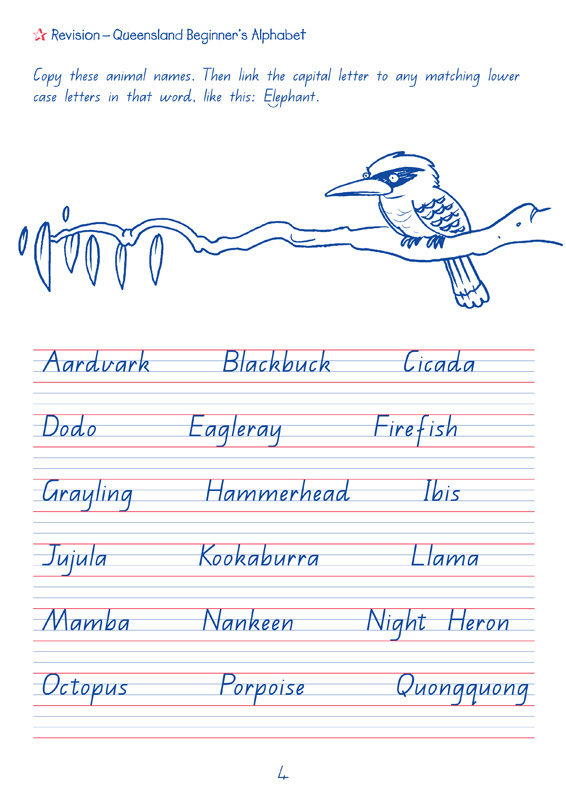 Revision – Queensland Beginner's Alphabet
Copy these animal names. Then link the capital letter to any matching lower
case letters in that word, like this: Elephant.
Aardvark Blackbuck Cicada
Dodo Eagleray Firefish
Grayling Hammerhead Ibis
Jujula Kookaburra Llama
Mamba Nankeen Night Heron
Octopus Porpoise Quongquong
4